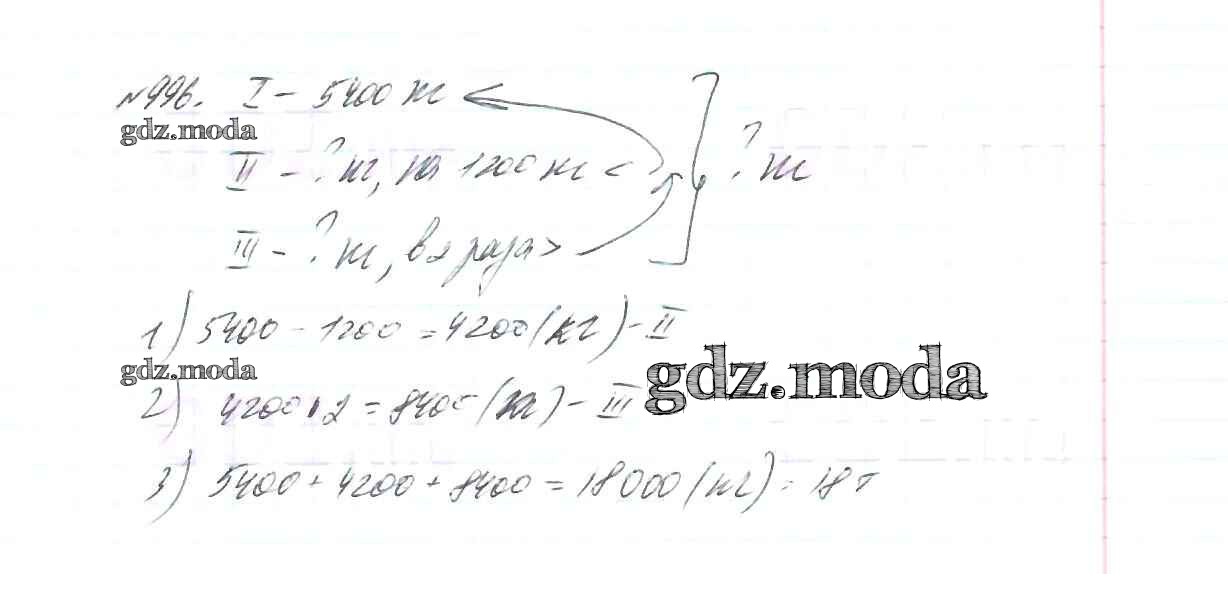 №996. I - 5400 кг
gdz.moda
II - ? кг, на 1200 кг < ? кг
III - ? кг, в 2 раза >
1) 5400 - 1200 = 4200 (кг) - II
gdz.moda
gdz.moda
2) 4200 · 2 = 8400 (кг) - III
3) 5400 + 4200 + 8400 = 18000 (кг) = 18 т